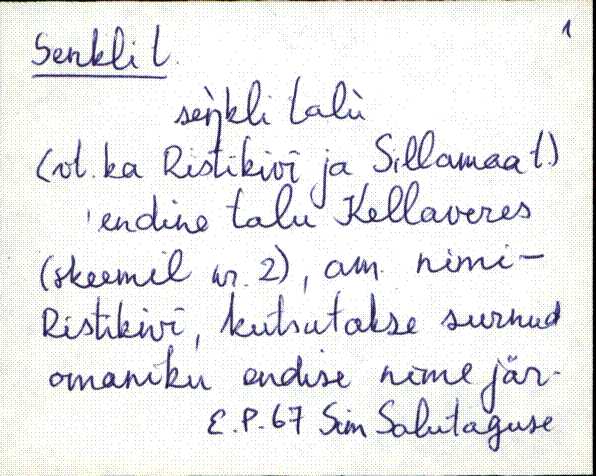 1
Senkli t.
sèŋkli talù
(vt. ka Ristikivi ja Sillamaa t.)
endine talu Kellaveres
(skeemil nr. 2), am. nimi -
Ristikivi, kutsutakse surnud
omaniku endise nime jär-
E.P. 67 Sim Salutaguse